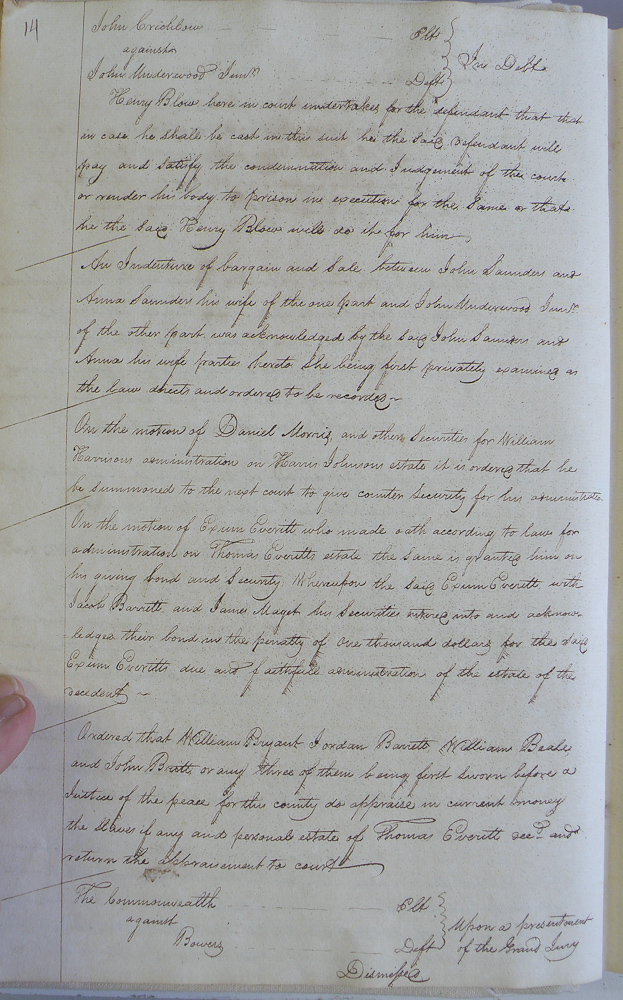 14
John Crichlow Plt
against } In Debt
John Underwood Junr. Deft
Henry Blow here in court undertakes for the defendant that that
in case he shall be cast in this suit he the said Defendant will
pay and satisfy the condemnation and Judgement of the court
or render his body to prison in execution for the same or that
he the said Henry Blow will do it for him
An Indenture of bargain and Sale between John Saunders and
Anna Saunders his wife of the one part and John Underwood Junr.
of the other part was acknowledged by the said John Saunders and
Anna his wife parties hereto she being first privately examined as
the law directs and ordered to be recorded ~
On the motion of Daniel Morris, and other Securities for William
Harrisons administration on Harris Johnsons estate it is ordered that he
be summoned to the next court to give counter Security for his
On the motion of Exum Everett who made oath according to law for
administration on Thomas Everetts estate the same is granted him on
his giving bond and Security Whereupon the said Exum Everett with
Jacob Barrett, and James Maget his Securities entered into and acknow-
-ledged their bond in the penalty of one thousand dollars for the said
Exum Everetts due and faithfull administration of the estate of the
decedent ~
Ordered that William Bryant Jordan Barrett William Beale,
and John Britt or any three of them being first sworn before a
Justice of the peace for this county do appraise in current money
the slaves if any and personal estate of Thomas Everett decd. and
return the appraisement to court
The Commonwealth Plt
against } Upon a presentment
Bowers Deft } of the Grand Jury
Dismissed